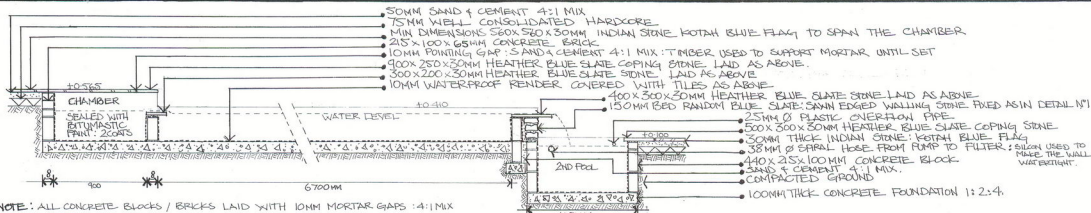 50MM SAND & CEMENT 4:1 MIX
75MM WELL CONSOLIDATED HARDCORE
MIN DIMENSIONS 560 x 560 x 30MM INDIAN STONE KOTAH BLUE FLAG TO SPAN THE CHAMBER
215 x 100 x 65MM CONCRETE BRICK
10MM POINTING GAP: SAND & CEMENT 4:1 MIX: TIMBER USED TO SUPPORT MORTAR UNTIL SET
900 x 250 x 30MM HEATHER BLUE SLATE COPING STONE LAID AS ABOVE.
300 x 200 x 30MM HEATHER BLUE SLATE STONE LAID AS ABOVE
10MM WATERPROOF RENDER COVERED WITH TILES AS ABOVE
400 x 300 x 30MM HEATHER BLUE SLATE STONE LAID AS ABOVE
150MM BED RANDOM BLUE SLATE: SAWN EDGED WALLING STONE FIXED AS IN DETAIL Nº1
25MM Ø PLASTIC OVERFLOW PIPE
500 x 300 x 30MM HEATHER BLUE SLATE COPING STONE
30MM THICK INDIAN STONE: KOTAH BLUE FLAG
38MM Ø SPIRAL HOSE FROM PUMP TO FILTER: SILCON USED TO MAKE THE WALL WATERTIGHT.
440 x 215 x 100MM CONCRETE BLOCK
SAND & CEMENT 4:1 MIX.
COMPACTED GROUND
100MM THCK CONCRETE FOUNDATION 1:2:4.
+0·565
CHAMBER
SEALED WITH
BITUMASTIC
PAINT: 2COATS
+0·410
WATER LEVEL
+0·100
2ND POOL
900
6700MM
NOTE: ALL CONCRETE BLOCKS / BRICKS LAID WITH 10MM MORTAR GAPS: 4:1 MIX